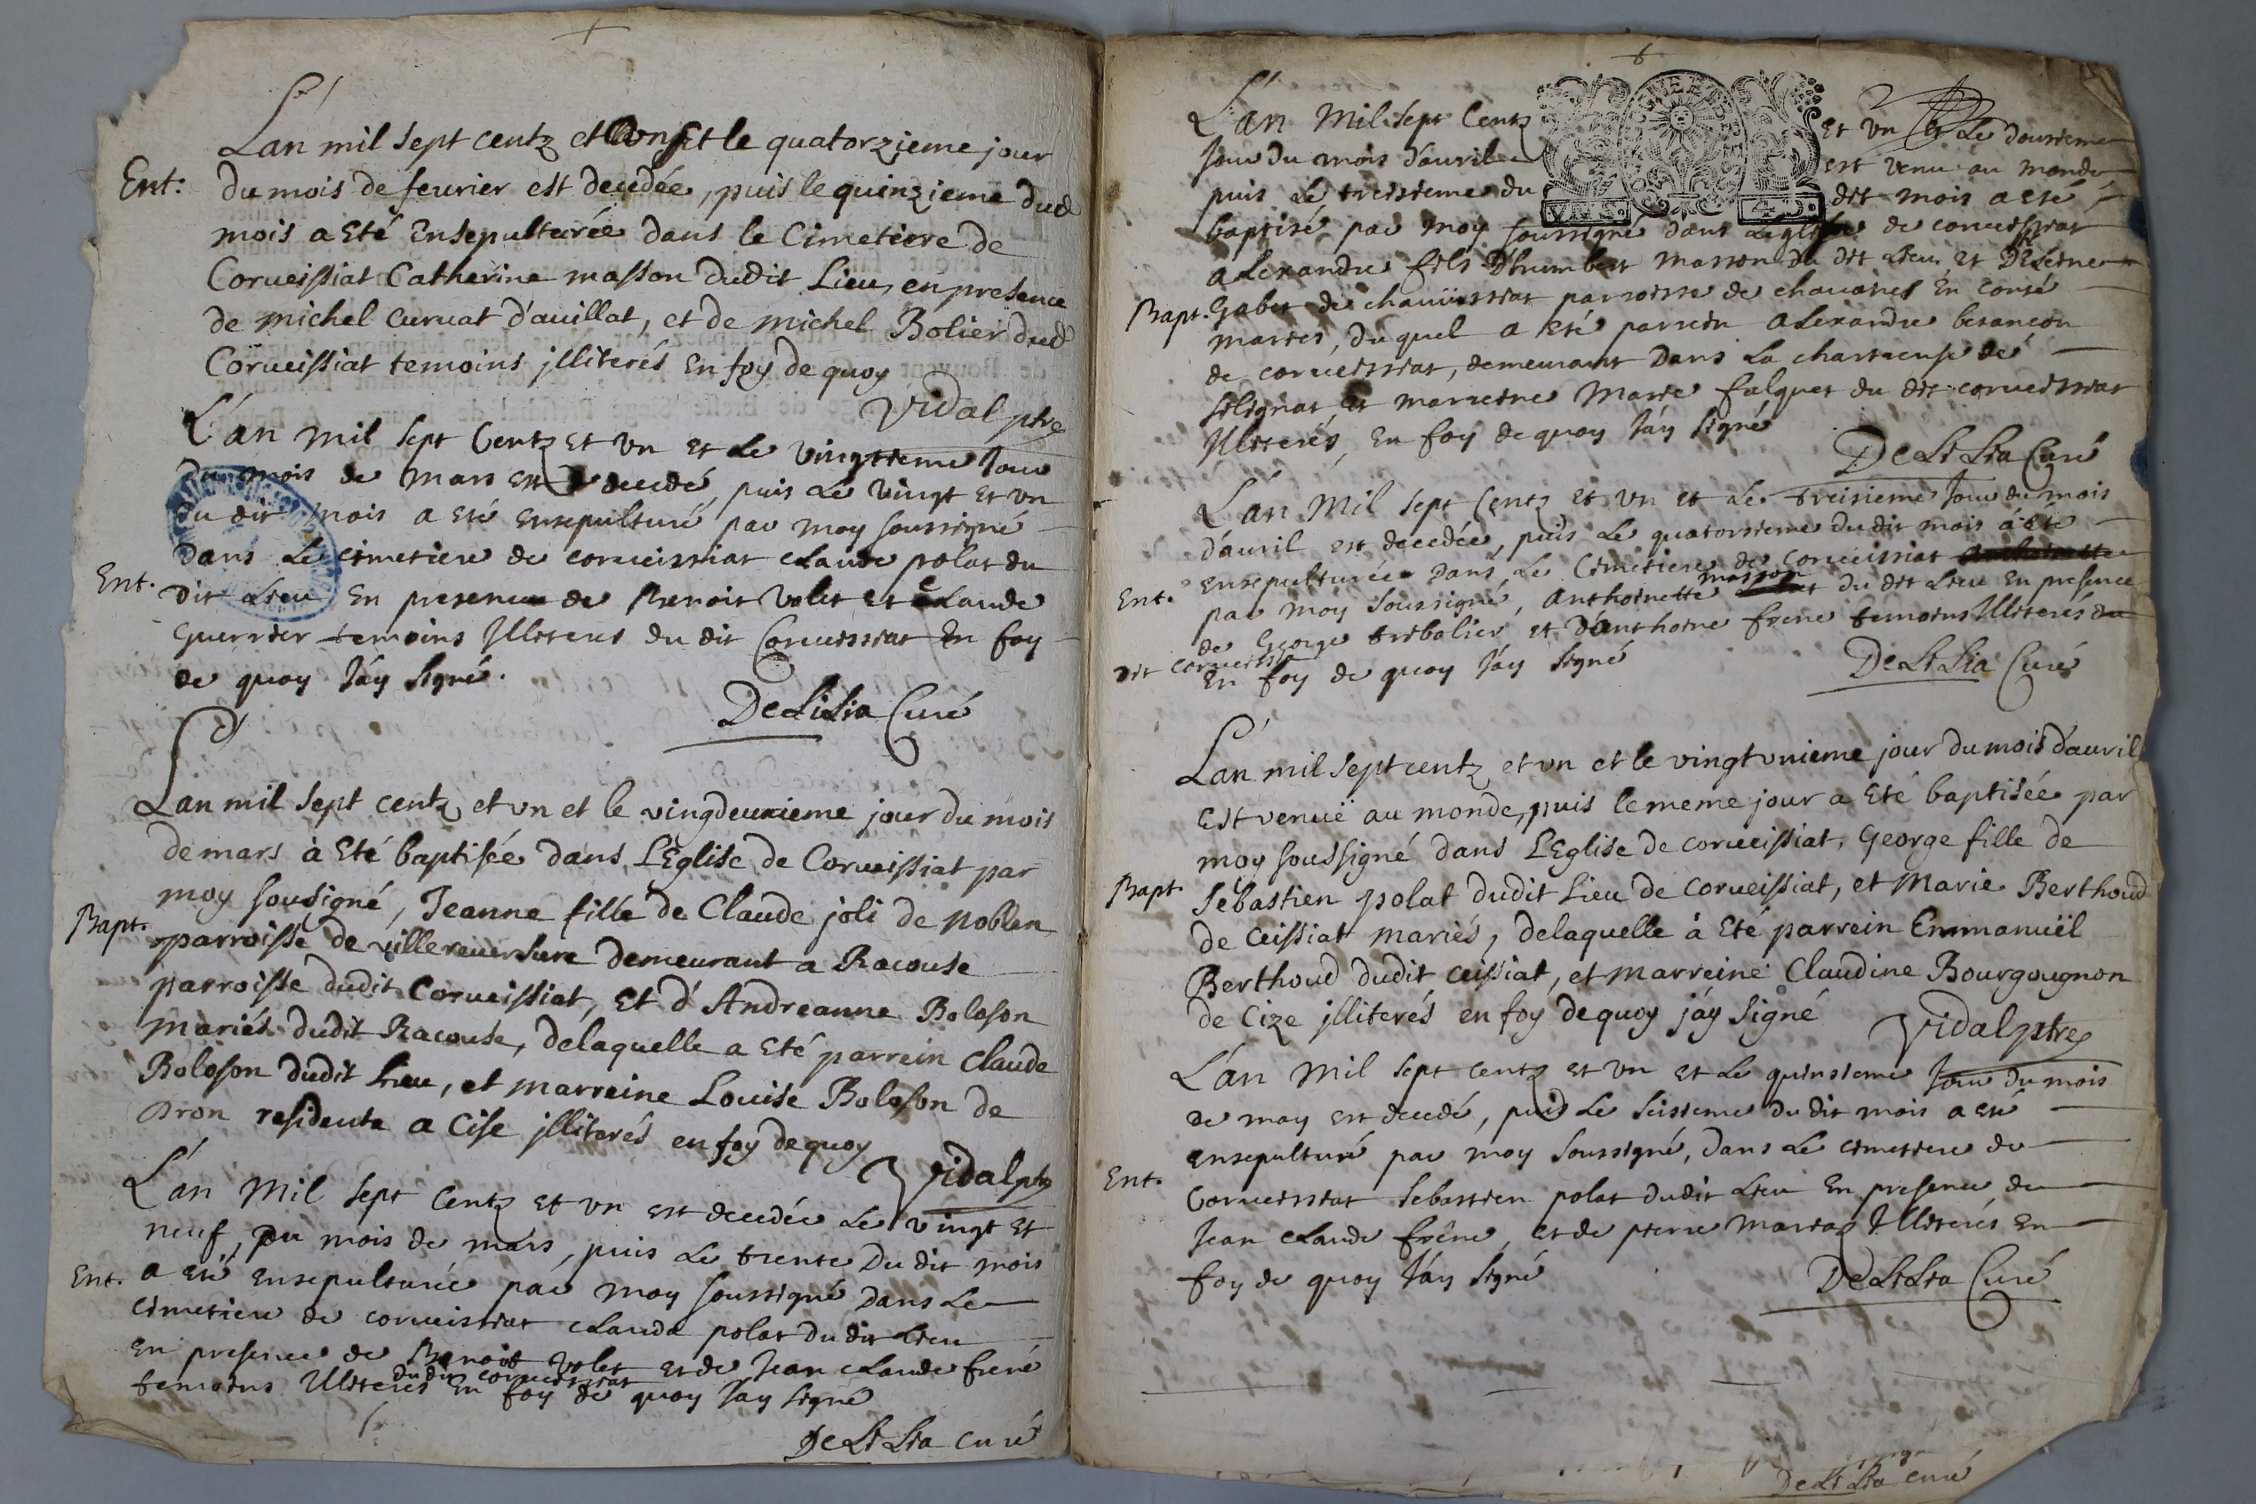 L'an mil sept centz et un et le quatorzieme jour
Ent: du mois de feurier est decedée, puis le quinzieme dud
mois a eté ensepulturée dans le Cimetiere de
Corveissiat Catherine masson dudit Lieu, en presence
de michel curvat d'avillat, et de michel Bolier dud
Corveissiat temoins jlliterés en foy de quoy
Vidal ptre
L'an mil sept Centz et vn et Le vingtieme Jour
du mois de mars est decedé, puis Le vingt et vn
du dit mois a eté ensepulturé par moy soussigné
dans Le cimetiere de corveissiat claude polat du
Ent. dit Lieu En presence de Benoit Volet et claude
Guerrier temoins Jlliterés du dit Corveissiat En foy
de quoy J'ay signé.
DeLiLia Curé
L'an mil sept centz et vn et le vingdeuxieme jour du mois
de mars à eté baptisée dans L'Eglise de Corveissiat par
moy sousigné, Jeanne fille de Claude joli de noblen
Bapt. parroisse de villereversure demeurant a Racouse
parroisse dudit Corveissiat, et d'Andreanne Boloson
mariés dudit Racouse, delaquelle a eté parrein Claude
Boloson dudit Lieu, et marreine Louise Boloson de
dron residente a Cise jlliterés en foy de quoy
Vidal ptre
L'an Mil sept Centz et vn est decedée Le vingt et
neuf, du mois de mars, puis Le trente du dit mois
Ent. a eté ensepulturée par moy soussigné dans Le
cimetiere de corveissiat clauda polat du dit Lieu
en presence de Benoit Volet et de Jean claude frené
du dit corveissiat
temoins Jlliterés En foy de quoy J'ay signé
DeLiLia curé
L'an Mil sept Centz et vn et Le douzieme
Jour du mois d'auril est venu au monde
GENER
puis Le treizieme du dit mois a eté
VN S. 4 D.
baptisé par moy soussigné dans L'eglise de corveissiat
alexandre fils d'humbert masson du dit Lieu et d'
Bapt. Gabet de parroisse de chavanes En conté
mariés, du quel a eté parrein alexandre besançon
de corveissiat, demeurant dans La chartreuse de
selignat, et marreine Marie falquet du dit corveissiat
Jlliterés, En foy de quoy J'ay signé
DeLiLia Curé
L'an Mil sept Centz et vn et Le treisieme Jour du mois
d'auril est decedée, puis Le quatorsieme du dit mois à eté
ensepulturée dans Le Cimetiere de Corveissiat
masson
Ent. par moy soussigné, anthoinette du dit Lieu En presence
de George tribolier et d'anthoine frene temoins Jlliterés du
dit corveissiat
En foy de quoy J'ay signé
DeLiLia Curé
L'an mil sept centz et vn et le vingtvnieme jour du mois d'auril
est venuë au monde, puis le meme jour a eté baptisée par
moy soussigné dans L'Eglise de corveissiat, George fille de
Bapt. Sebastien polat dudit Lieu de Corveissiat, et Marie Berthoud
de Ceissiat mariés, delaquelle à eté parrein Emmanuël
Berthoud dudit ceissiat, et marreine Claudine Bourgougnon
de Cize jlliterés en foy de quoy j'ay signé
Vidal ptre
L'an Mil sept centz et vn et Le quinsieme Jour du mois
de may est decedé, puis Le seisieme du dit mois a eté
ensepulturé par moy soussigné, dans Le cimetiere de
Ent. Corveissiat sebastien polat dudit Lieu En presence de
Jean claude frêne, et de pierre Jlliterés En
foy de quoy J'ay signé
DeLiLia Curé
DeLiLia curé